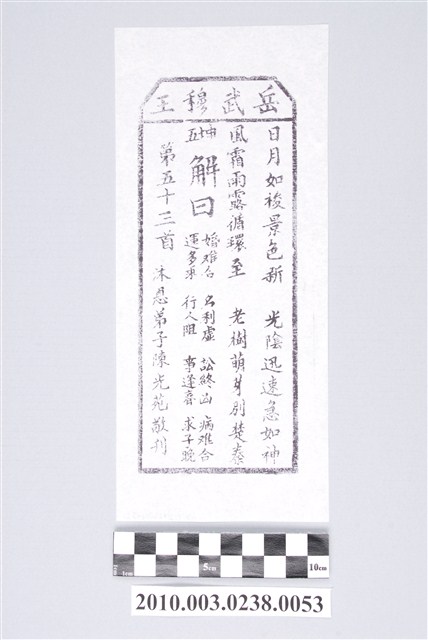 岳武穆王
日月如梭景色新　光陰迅速急如神
風霜雨露循環至　老樹萌芽別楚秦
坤五　解曰
婚难合　名利虛　訟終凶　病难合
運多乖　行人阻　事逢春　求子晚
第五十三首　沐恩弟子陳光苑敬刊
1cm 5cm 10cm
2010.003.0238.0053